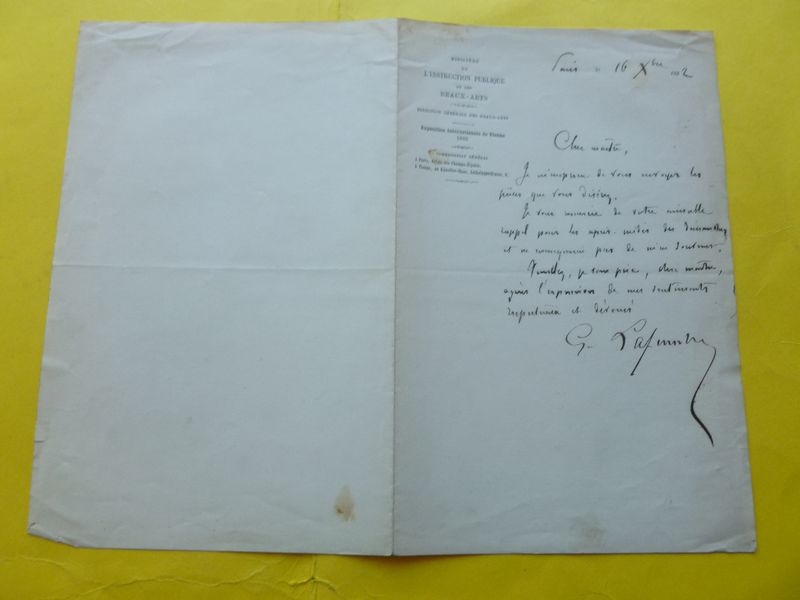 MINISTÈRE
DE
L'INSTRUCTION PUBLIQUE
ET DES
BEAUX-ARTS
DIRECTION GÉNÉRALE DES BEAUX-ARTS
Exposition internationale de Vienne
COMMISSARIAT GÉNÉRAL
à Paris, Palais des Champs-Élysées,
Paris 16 Xbre
Cher maître,
Je m'empresse de vous envoyer les
pièces que vous désirez.
Je vous remercie de votre aimable
rappel pour les après-midis des
et ne manquerai pas de m'en
Veuillez, je vous prie, cher maître,
agréer l'expression de mes sentiments
respectueux et dévoués
G. Lafenestre